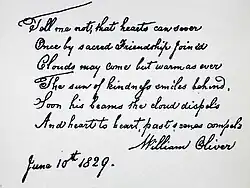 Tell me not, that hearts can sever
Once by sacred Friendship join'd
Clouds may come but warm as ever
The sun of kindness smiles behind.
Soon his beams the cloud dispels
And heart to heart, past scenes compels
William Oliver
June 10th 1829.